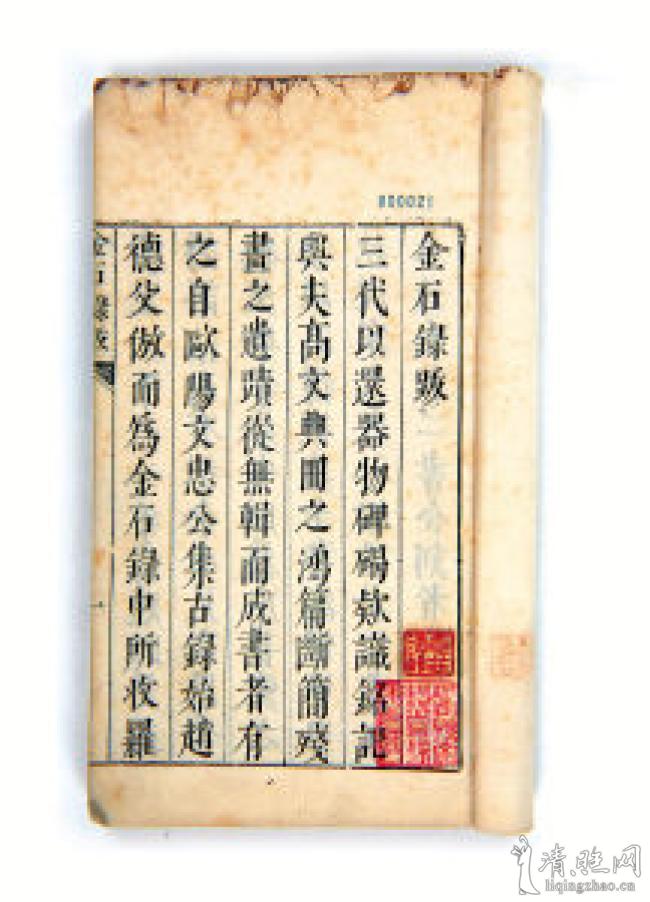 金石錄跋
三代以還器物碑碣欵識銘記
與夫高文典冊之鴻篇斷簡殘
書之遺蹟從無輯而成書者有
之自歐陽文忠公集古録始趙
德父倣而為金石錄中所收羅
金石錄跋
一
000021
清照网
liqingzhao.cn